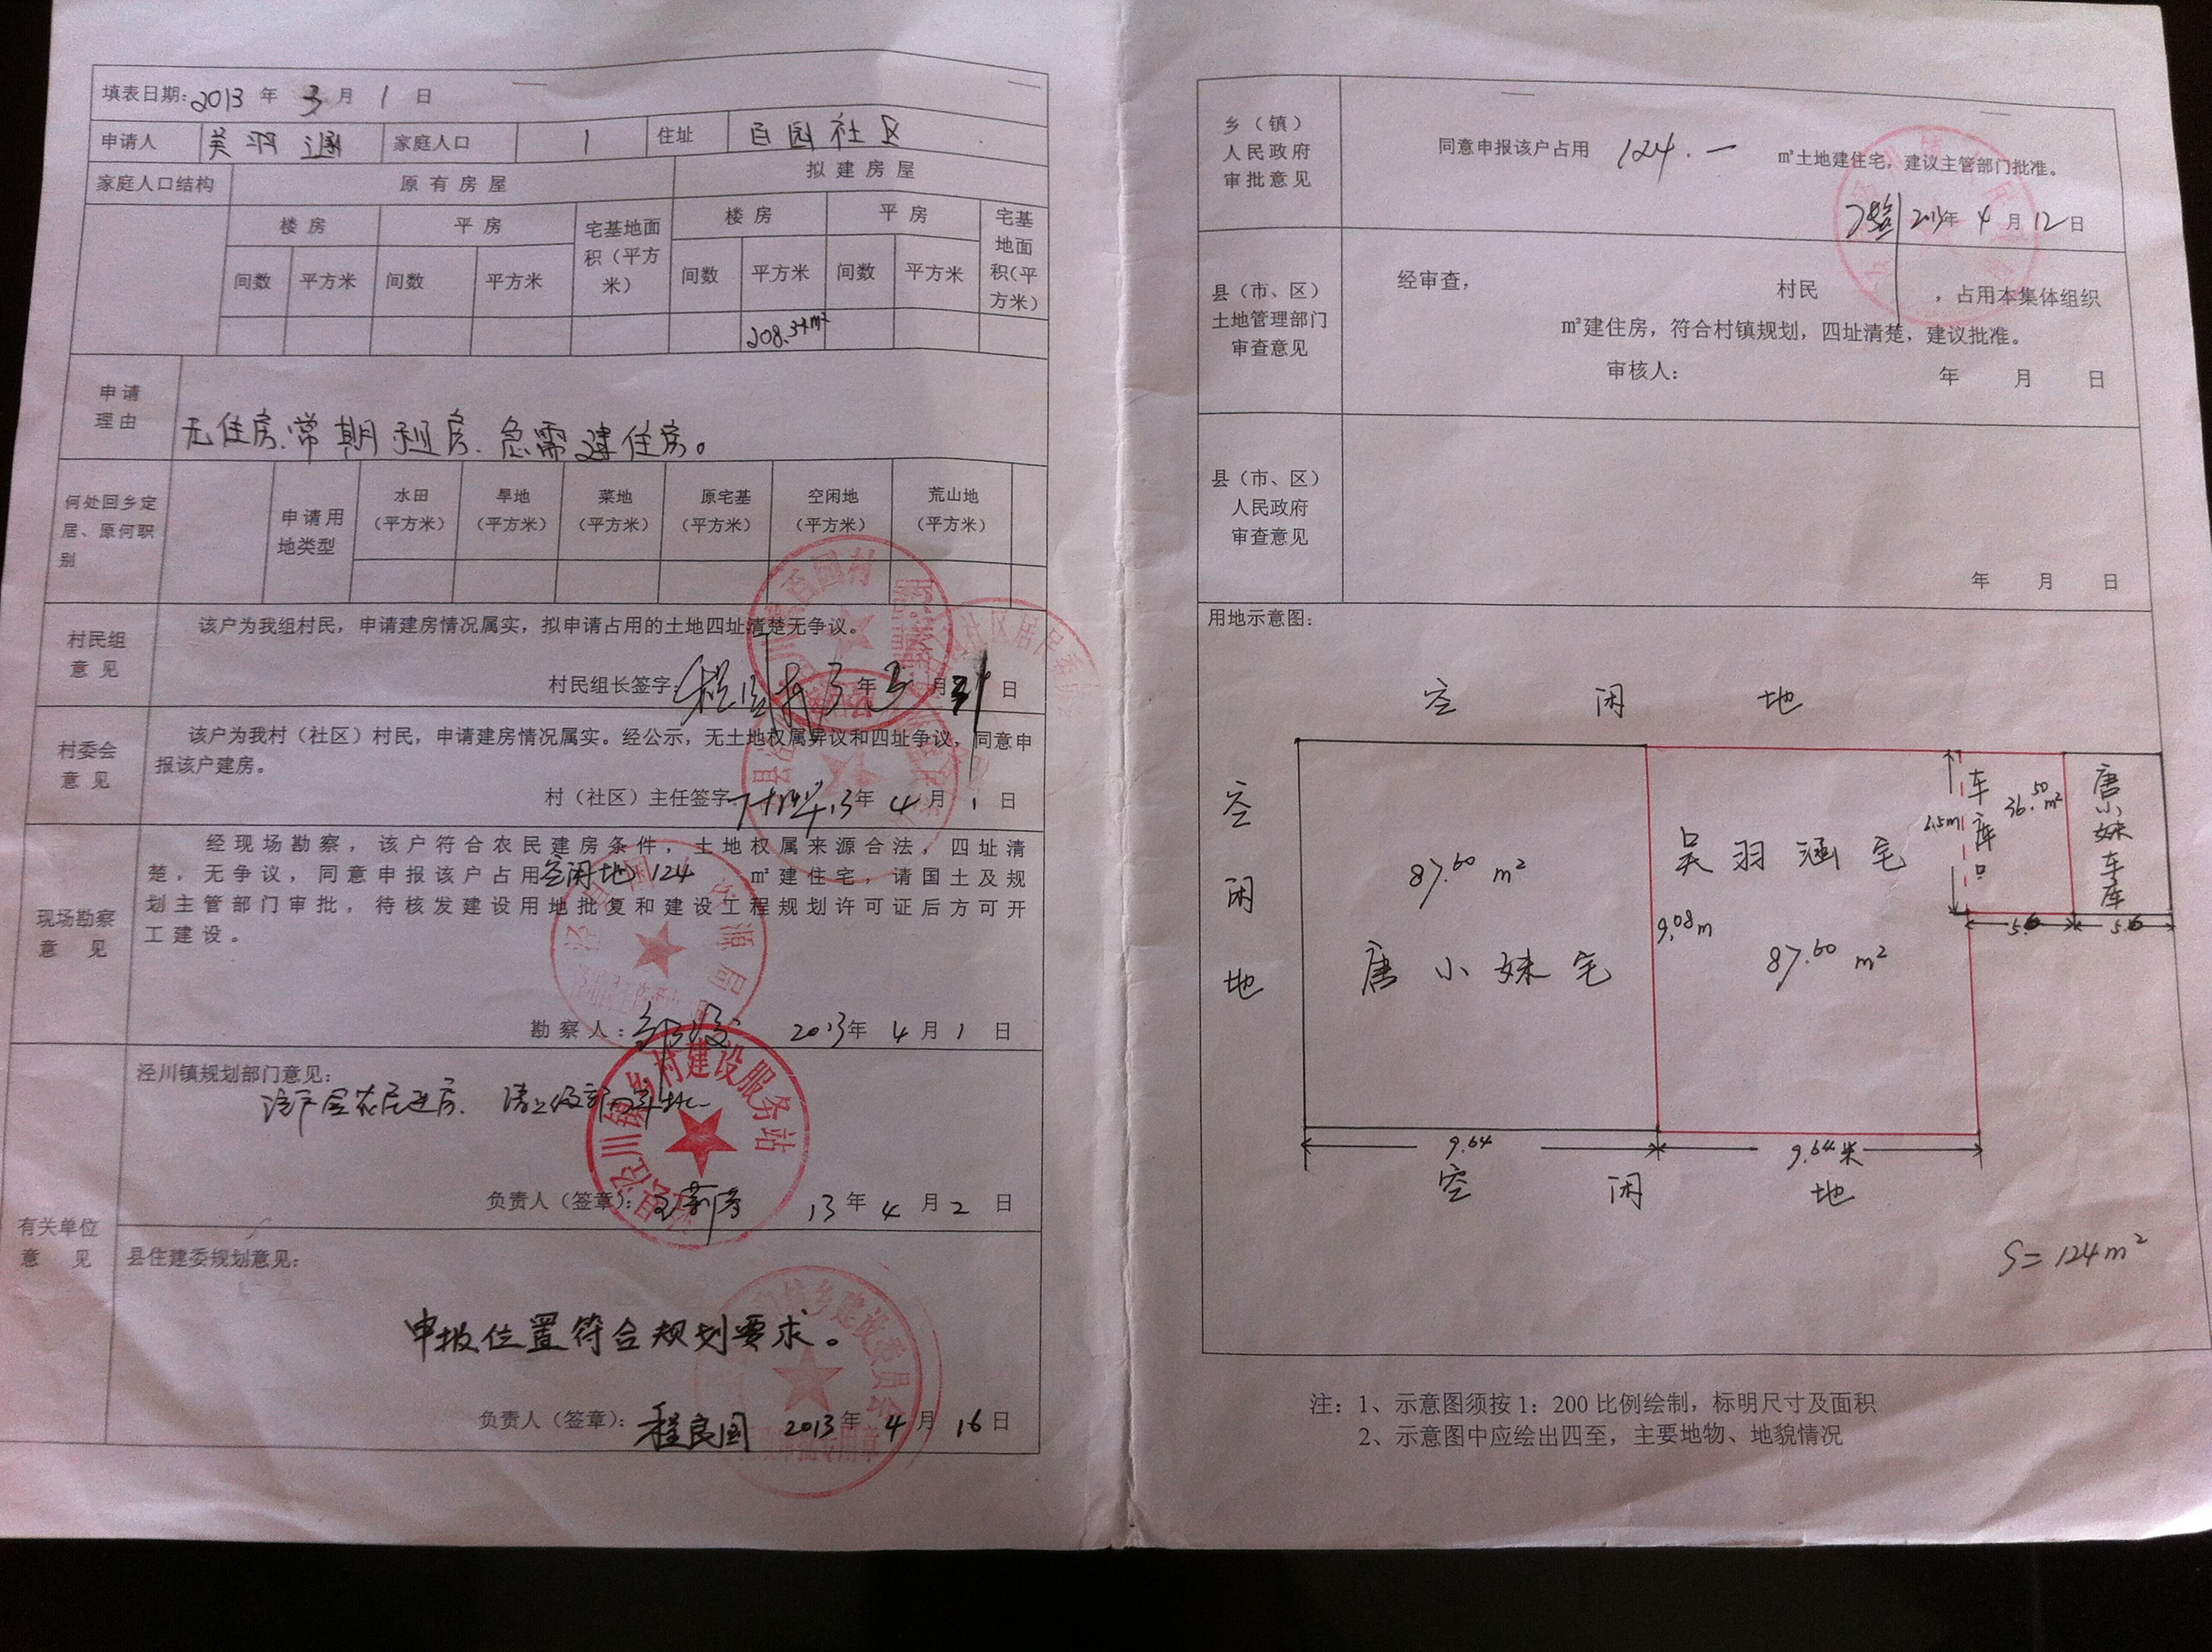 填表日期：2013 年 3 月 1 日
申请人 吴羽涵 家庭人口 1 住址 百园社区
家庭人口结构 原有房屋 拟建房屋
楼房 平房 宅基地面积（平方米） 楼房 平房 宅基地面积（平方米）
间数 平方米 间数 平方米 间数 平方米 间数 平方米
208.34m²
申请理由 无住房.常期租房.急需建住房。
何处回乡定居、原何职别 申请用地类型 水田（平方米） 旱地（平方米） 菜地（平方米） 原宅基（平方米） 空闲地（平方米） 荒山地（平方米）
村民组意见 该户为我组村民，申请建房情况属实，拟申请占用的土地四址清楚无争议。
村民组长签字： 13 年 3 月 31 日
村委会意见 该户为我村（社区）村民，申请建房情况属实。经公示，无土地权属异议和四址争议，同意申
报该户建房。
村（社区）主任签字 13 年 4 月 1 日
现场勘察意见 经现场勘察，该户符合农民建房条件，土地权属来源合法，四址清
楚，无争议，同意申报该户占用空闲地 124 ㎡建住宅，请国土及规
划主管部门审批，待核发建设用地批复和建设工程规划许可证后方可开
工建设。
勘察人： 2013年 4 月 1 日
有关单位意见
泾川镇规划部门意见：
该户属农民建房. 请上级部门审批
泾川镇乡村建设服务站
负责人（签章）： 13 年 4 月 2 日
县住建委规划意见：
申报位置符合规划要求。
负责人（签章）：程良国 2013 年 4 月 16 日
乡（镇）人民政府审批意见 同意申报该户占用 124.一 ㎡土地建住宅，建议主管部门批准。
2013年 4 月 12 日
县（市、区）土地管理部门审查意见 经审查， 村民 ，占用本集体组织
㎡建住房，符合村镇规划，四址清楚，建议批准。
审核人： 年 月 日
县（市、区）人民政府审查意见
年 月 日
用地示意图：
空 闲 地
空闲地
87.60 m²
唐小妹宅
吴羽涵宅
9.08m
87.60 m²
6.5m
车库口
36.50m²
唐小妹车库
5.6 5.6
9.64 9.64米
空 闲 地
S=124m²
注：1、示意图须按 1：200 比例绘制，标明尺寸及面积
2、示意图中应绘出四至，主要地物、地貌情况